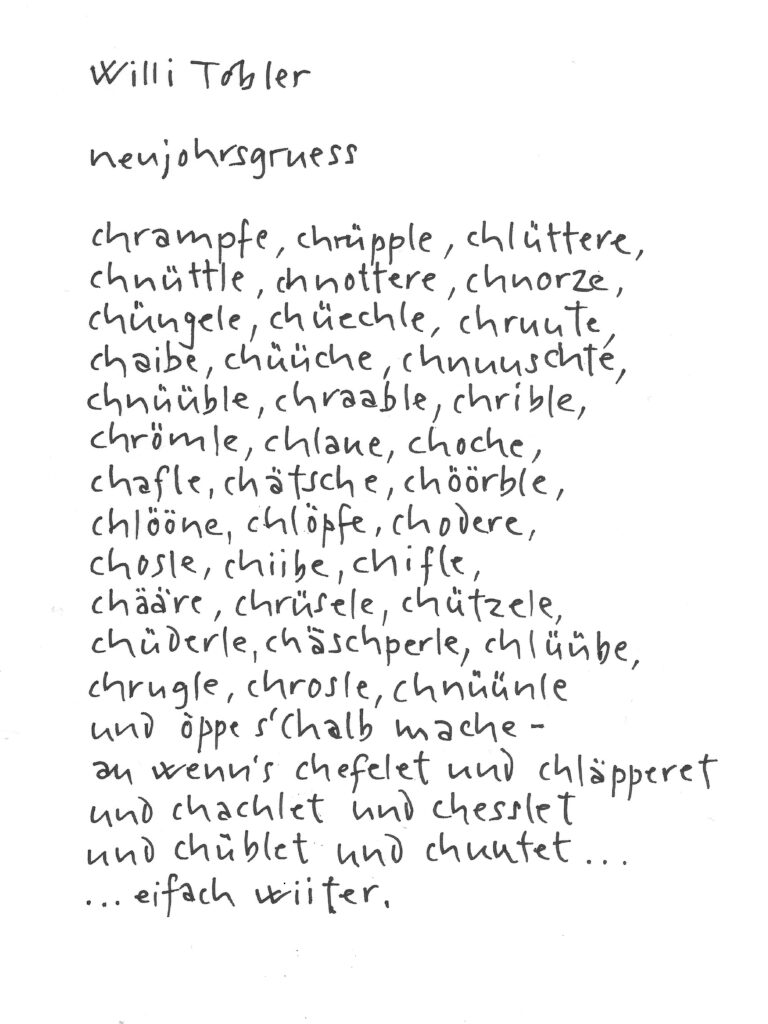 Willi Tobler
neujohrsgruess
chrampfe, chrüpple, chlüttere,
chnüttle, chnottere, chnorze,
chüngele, chüechle, chruute,
chaibe, chüüche, chnuuschte,
chnüüble, chraable, chrible,
chrömle, chlaue, choche,
chafle, chätsche, chöörble,
chlööne, chlöpfe, chodere,
chosle, chiibe, chifle,
chääre, chrüsele, chützele,
chüderle, chäschperle, chlüübe,
chrugle, chrosle, chnüünle
und öppe s'Chalb mache -
au wenn's chefelet und chläpperet
und chachlet und chesslet
und chüblet und chuutet...
...eifach wiiter.